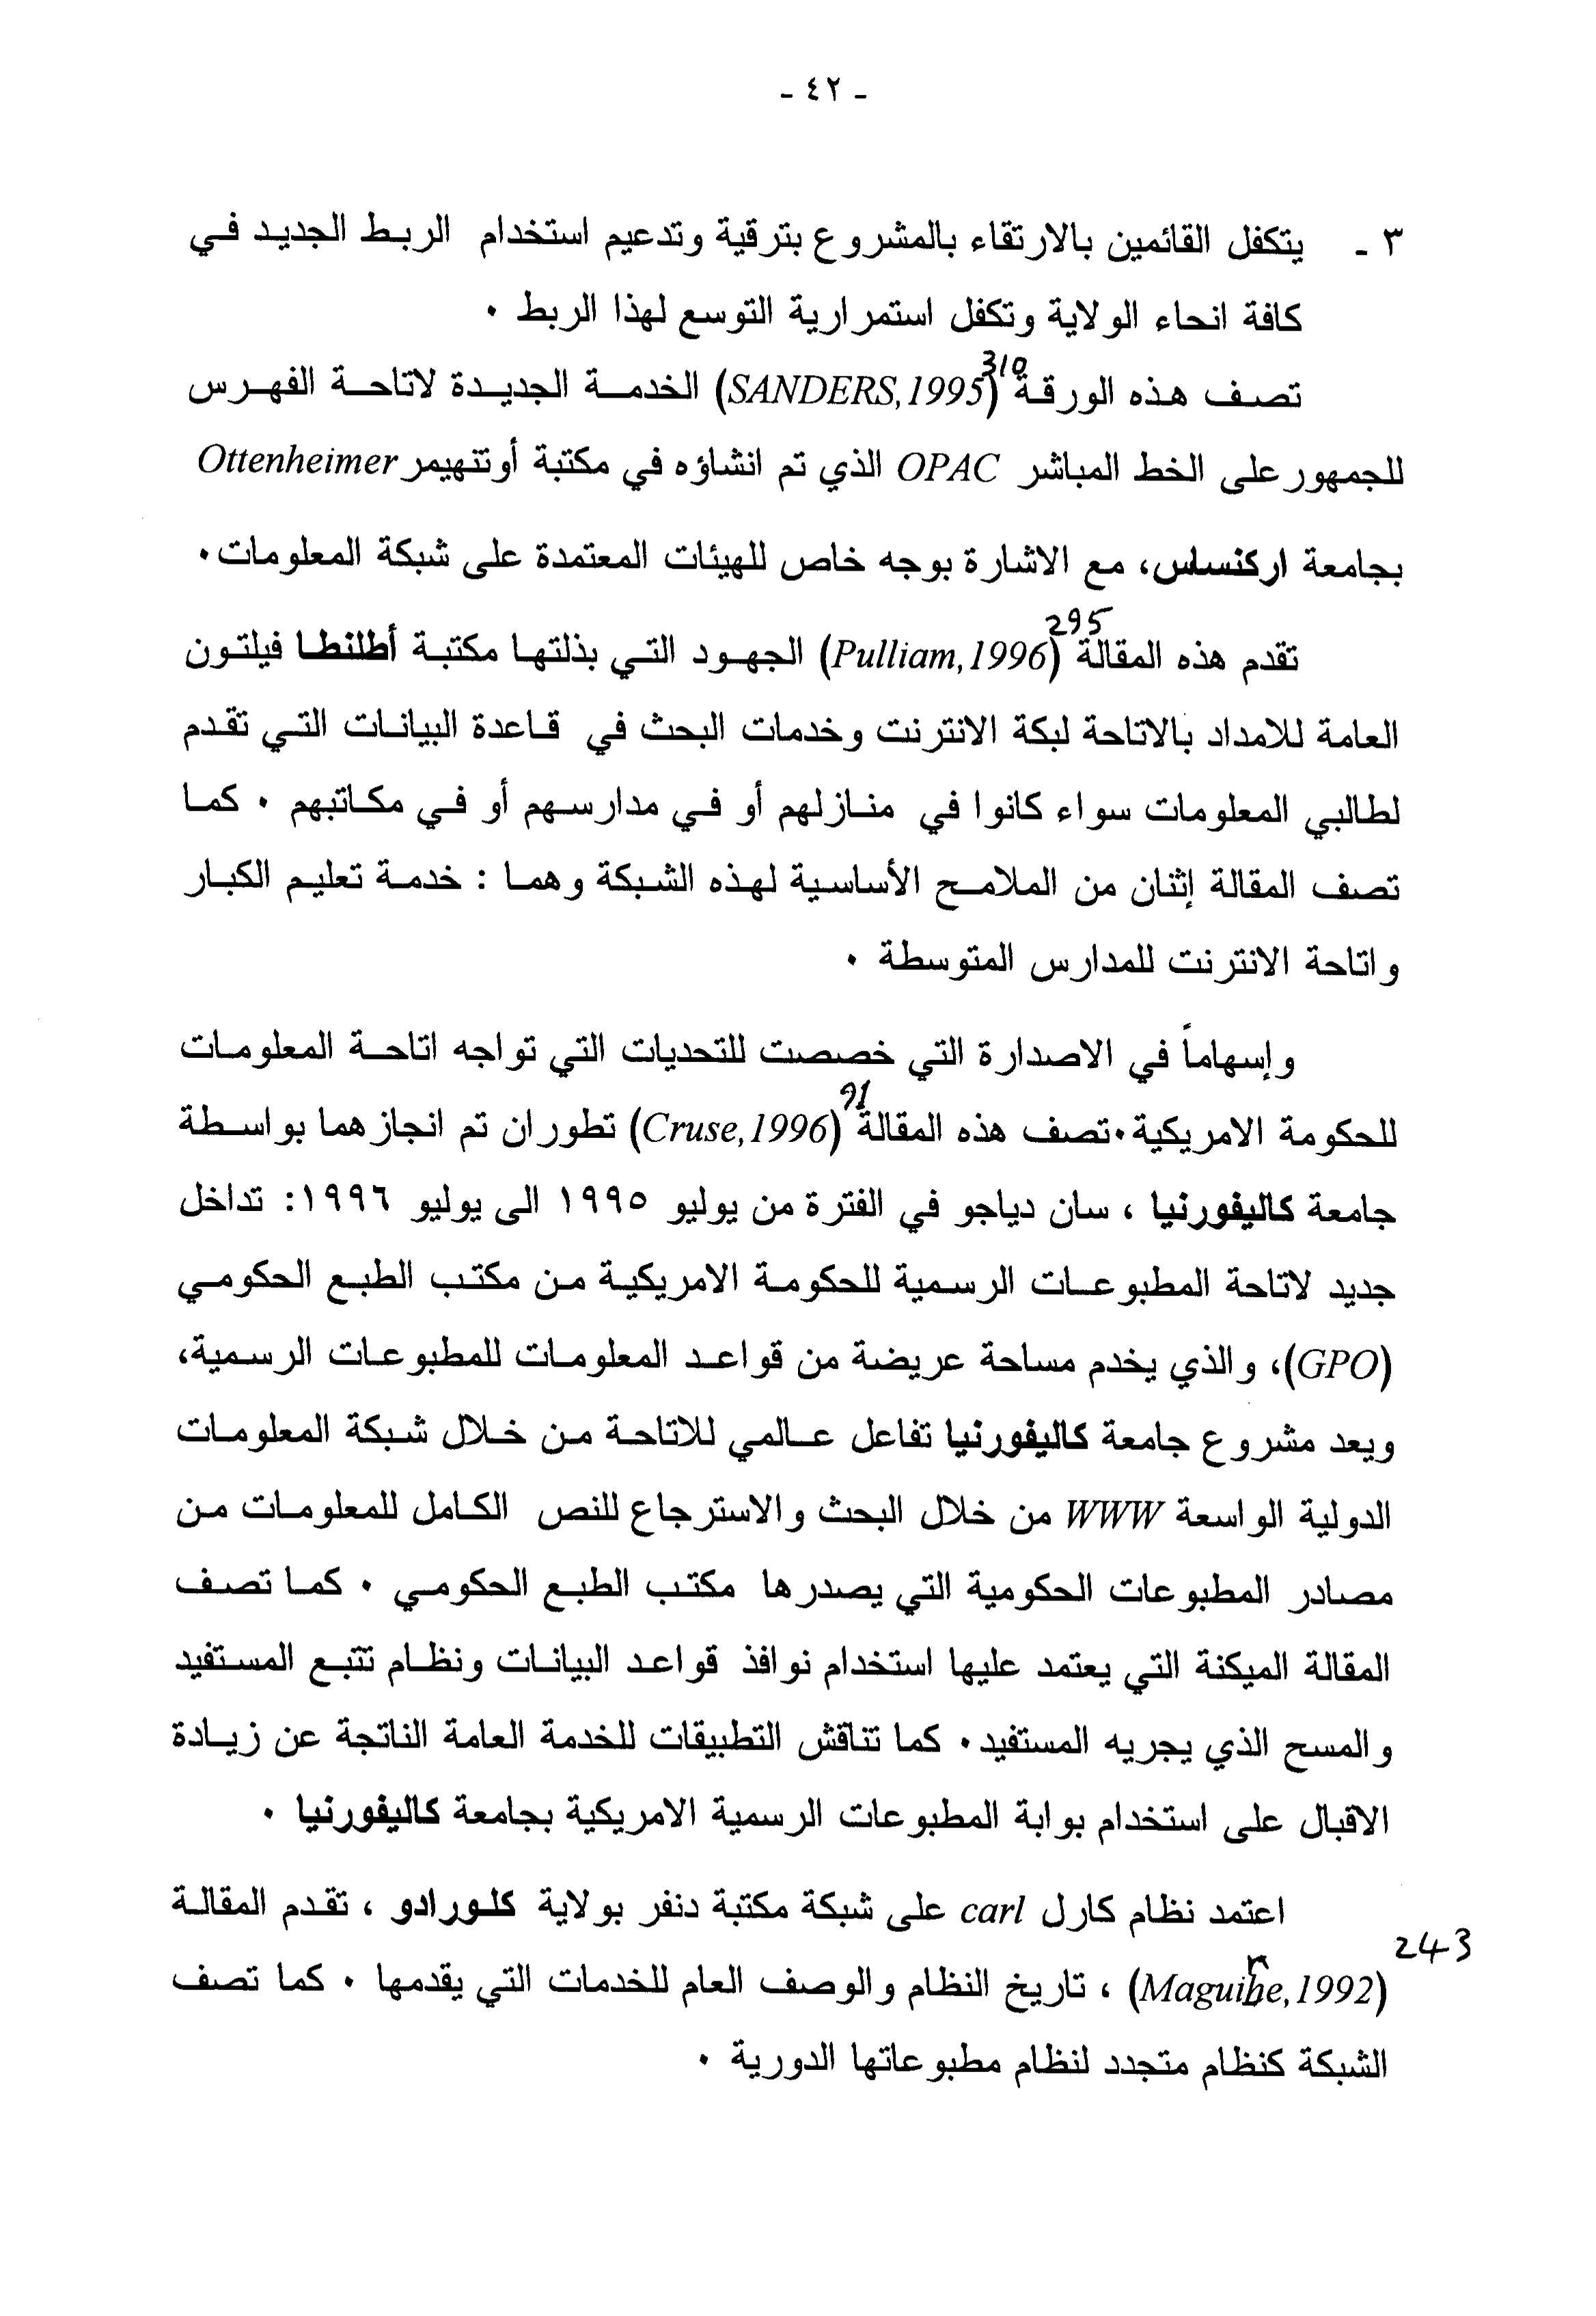 - ٤٢ -
٣ - يتكفل القائمين بالارتقاء بالمشروع بترقية وتدعيم استخدام الربط الجديد في
كافة انحاء الولاية وتكفل استمرارية التوسع لهذا الربط ٠
310
تصف هذه الورقة (SANDERS,1995) الخدمة الجديدة لاتاحة الفهرس
للجمهور على الخط المباشر OPAC الذي تم انشاؤه في مكتبة أوتنهيمر Ottenheimer
بجامعة اركنساس، مع الاشارة بوجه خاص للهيئات المعتمدة على شبكة المعلومات٠
295
تقدم هذه المقالة (Pulliam,1996) الجهود التي بذلتها مكتبة أطلنطا فيلتون
العامة للامداد بالاتاحة لبكة الانترنت وخدمات البحث في قاعدة البيانات التي تقدم
لطالبي المعلومات سواء كانوا في منازلهم أو في مدارسهم أو في مكاتبهم ٠ كما
تصف المقالة إثنان من الملامح الأساسية لهذه الشبكة وهما : خدمة تعليم الكبار
واتاحة الانترنت للمدارس المتوسطة ٠
وإسهاماً في الاصدارة التي خصصت للتحديات التي تواجه اتاحة المعلومات
91
للحكومة الامريكية٠تصف هذه المقالة (Cruse,1996) تطوران تم انجازهما بواسطة
جامعة كاليفورنيا ، سان دياجو في الفترة من يوليو ١٩٩٥ الى يوليو ١٩٩٦: تداخل
جديد لاتاحة المطبوعات الرسمية للحكومة الامريكية من مكتب الطبع الحكومي
(GPO)، والذي يخدم مساحة عريضة من قواعد المعلومات للمطبوعات الرسمية،
ويعد مشروع جامعة كاليفورنيا تفاعل عالمي للاتاحة من خلال شبكة المعلومات
الدولية الواسعة WWW من خلال البحث والاسترجاع للنص الكامل للمعلومات من
مصادر المطبوعات الحكومية التي يصدرها مكتب الطبع الحكومي ٠ كما تصف
المقالة الميكنة التي يعتمد عليها استخدام نوافذ قواعد البيانات ونظام تتبع المستفيد
والمسح الذي يجريه المستفيد٠ كما تناقش التطبيقات للخدمة العامة الناتجة عن زيادة
الاقبال على استخدام بوابة المطبوعات الرسمية الامريكية بجامعة كاليفورنيا ٠
اعتمد نظام كارل carl على شبكة مكتبة دنفر بولاية كلورادو ، تقدم المقالة
243
(Maguire,1992) ، تاريخ النظام والوصف العام للخدمات التي يقدمها ٠ كما تصف
الشبكة كنظام متجدد لنظام مطبوعاتها الدورية ٠